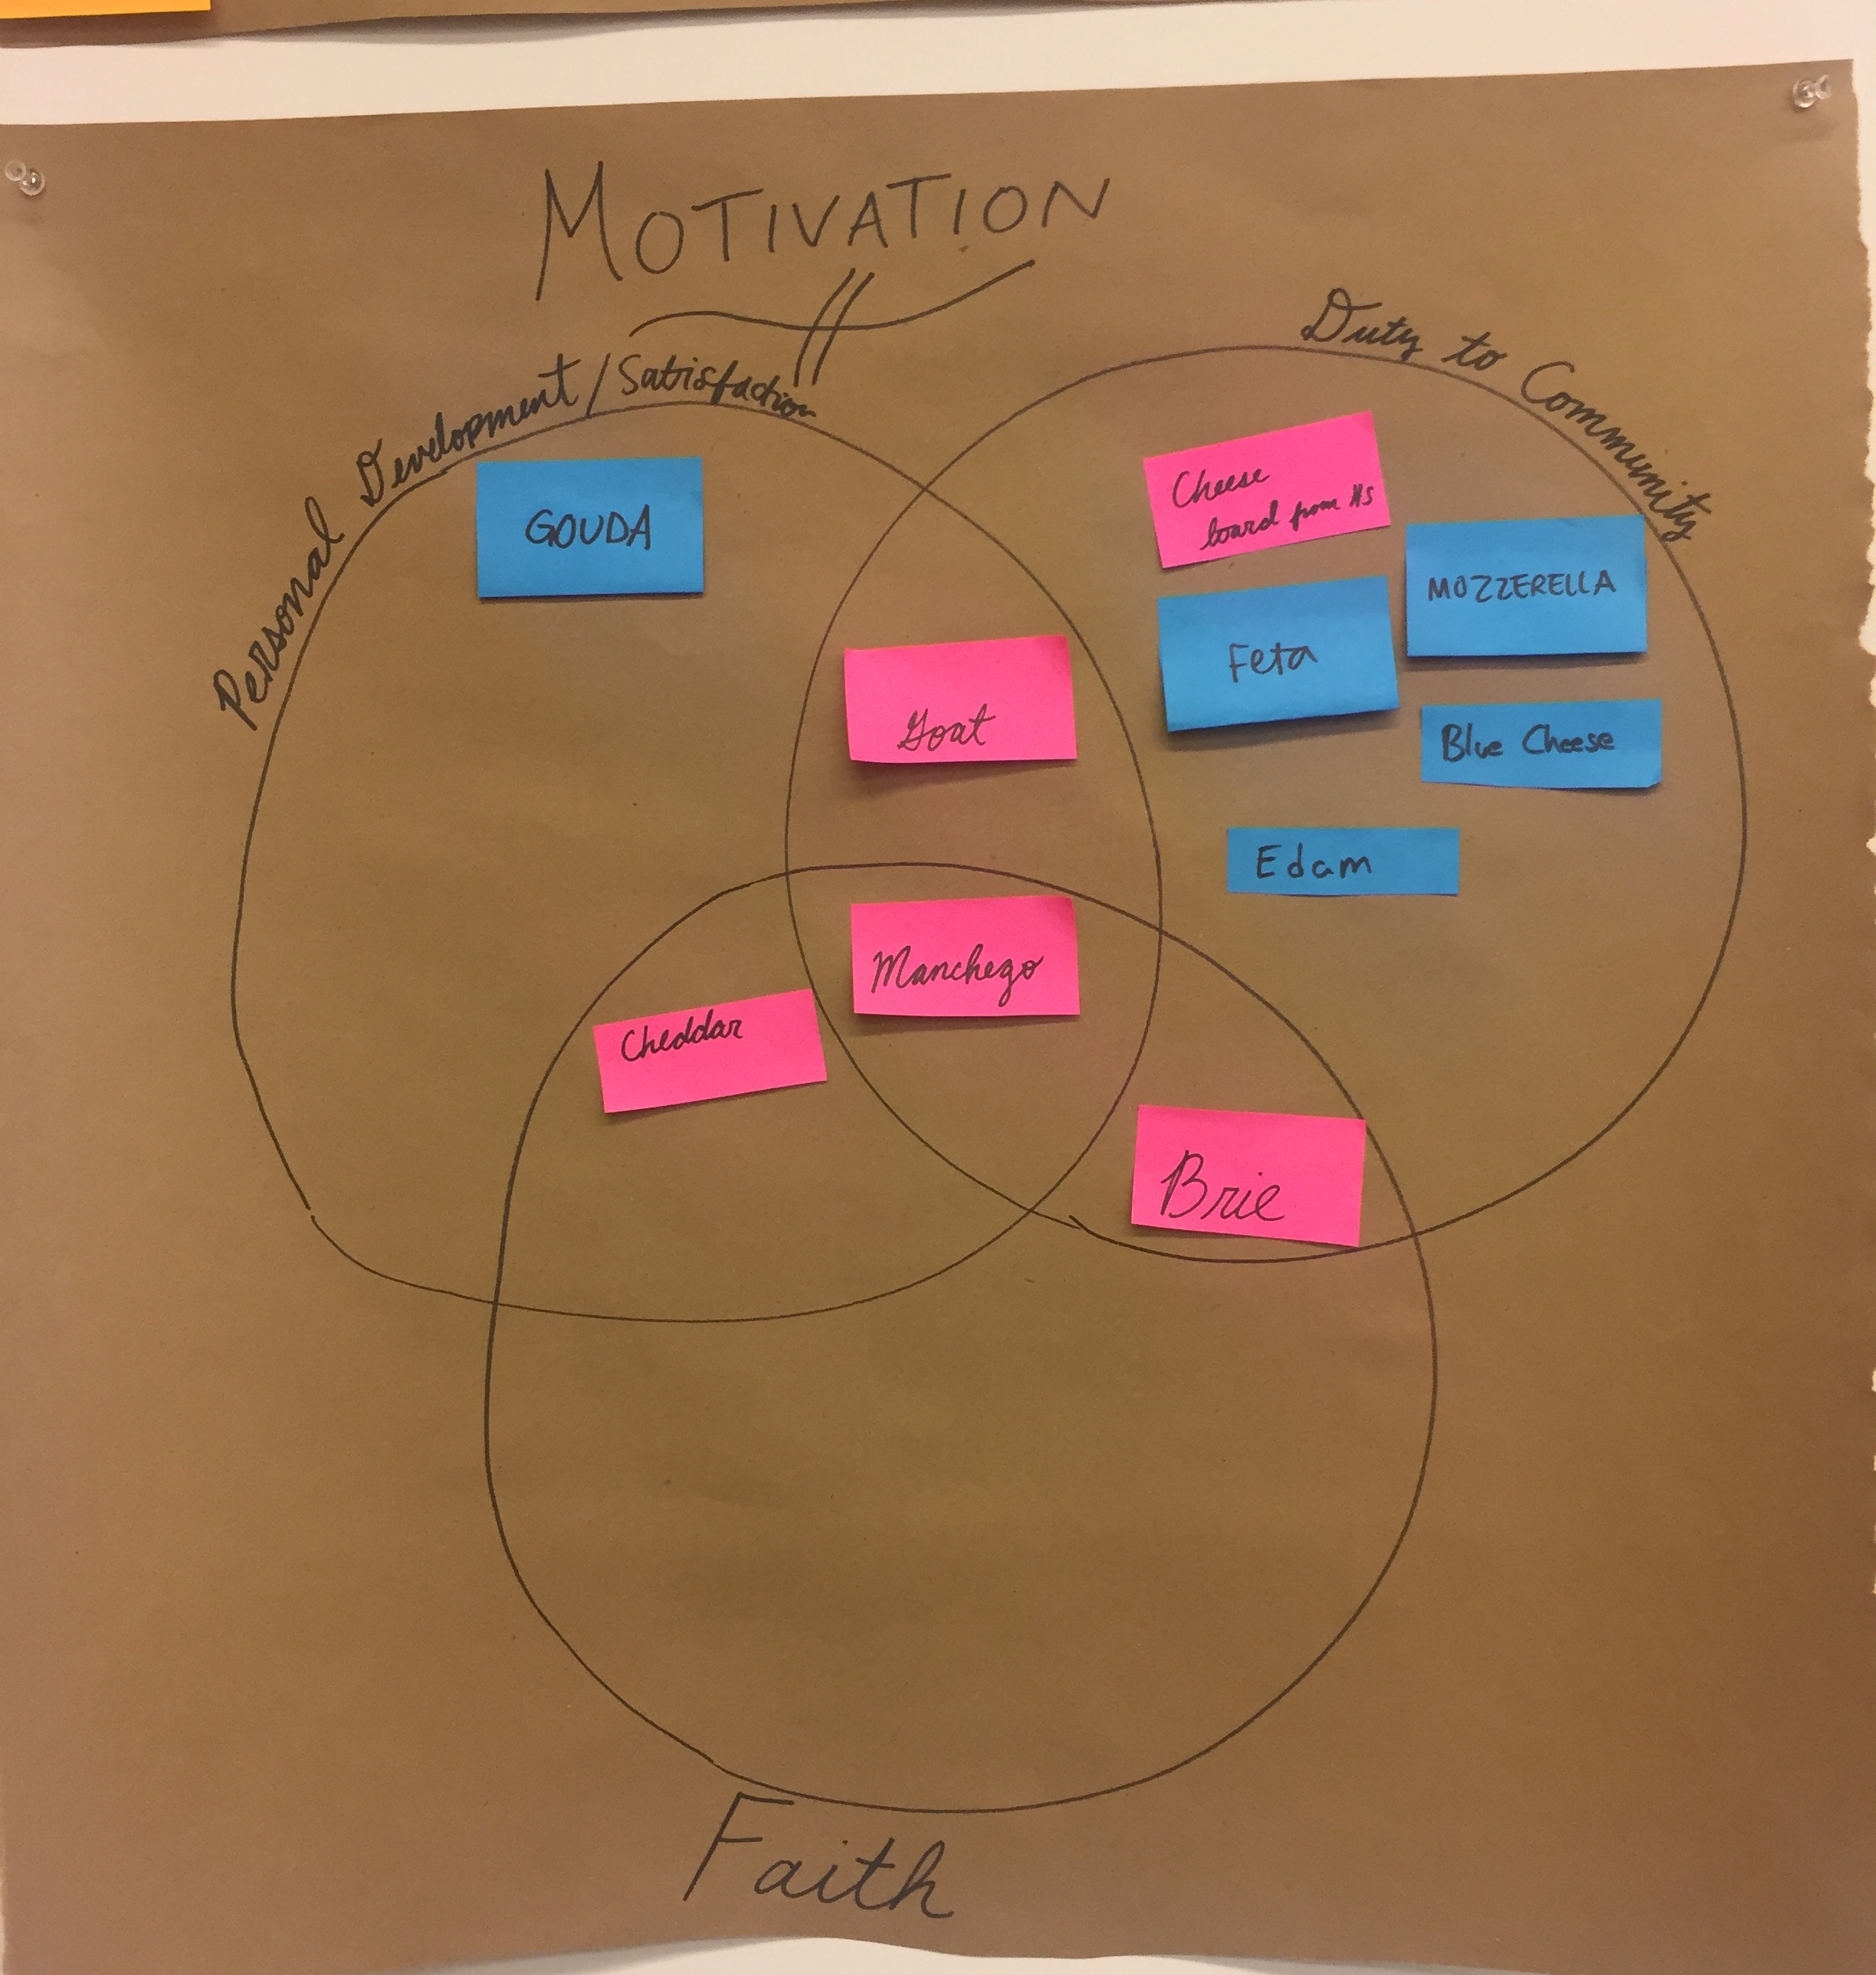 MOTIVATION
Personal Development/Satisfaction
Duty to Community
GOUDA
Cheese
board from HS
MOZZERELLA
Feta
Goat
Blue Cheese
Edam
Manchego
Cheddar
Brie
Faith